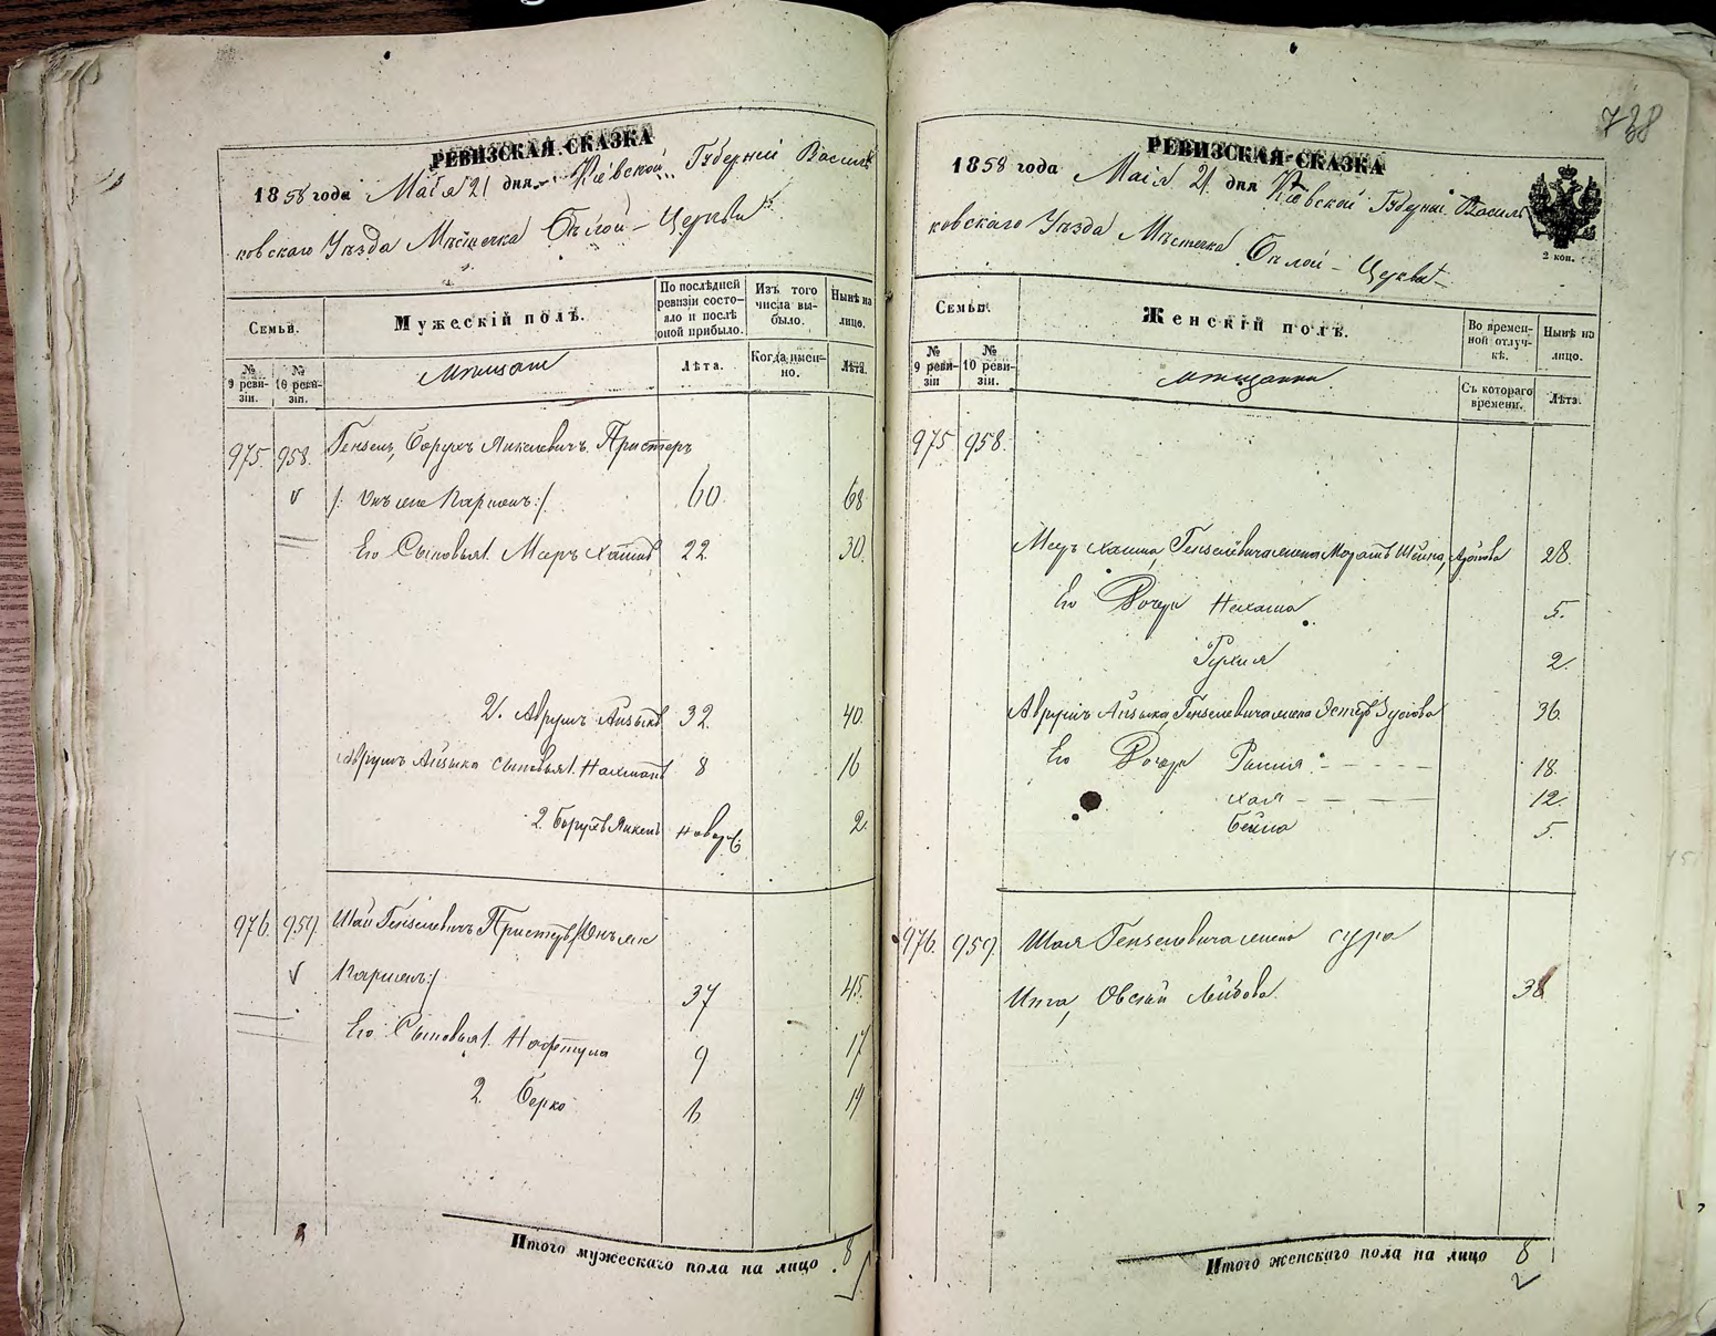 РЕВИЗСКАЯ СКАЗКА
1858 года Маія 21 дня Кіевской Губерніи Василь
ковскаго Уѣзда Мѣстечка Бѣлой-Церкви
Семьи.
Мужескій полъ.
По послѣдней ревизіи состо-
яло и послѣ
оной прибыло.
Изъ того
числа вы-
было.
Нынѣ на
лицо.
№
9 реви-
зіи.
№
10 реви-
зіи.
Мѣщане
Лѣта.
Когда имен-
но.
Лѣта.
975 958. Гензель, Борухъ Янкелевичъ Пристеръ
/: Онъ же :/ 60. 68
Его Сыновья 1. Мееръ Хаимъ 22 30.
2. Аврумъ Айзыкъ 32 40.
Аврумъ Айзыка сыновья 1. Нахманъ 8 16
2. Борухъ Янкель новор. 2.
976. 959. Шая Гензелевичъ Пристеръ /: Онъ же
37 45.
Его Сыновья 1. Нафтула 9 17
2. Берко 6 14
Итого мужескаго пола на лицо 8
738
РЕВИЗСКАЯ СКАЗКА
1858 года Маія 21 дня Кіевской Губерніи Василь
ковскаго Уѣзда Мѣстечка Бѣлой-Церкви
2 коп.
Семьи.
Женскій полъ.
Во времен-
ной отлуч-
кѣ.
Нынѣ на
лицо.
№
9 реви-
зіи
№
10 реви-
зіи.
мѣщанки
Съ котораго
времени.
Лѣта.
975 958.
Мееръ Хаима Гензелевича жена Шейна, 28.
Его Дочери Нехама 5.
Рухля 2.
Аврумъ Айзыка Гензелевича жена Эстеръ 36.
Его Дочери 18.
Хая 12.
Бейла 5.
976. 959. Шая Гензелевича жена Сура
Овсей Лейбова 38
Итого женскаго пола на лицо 8